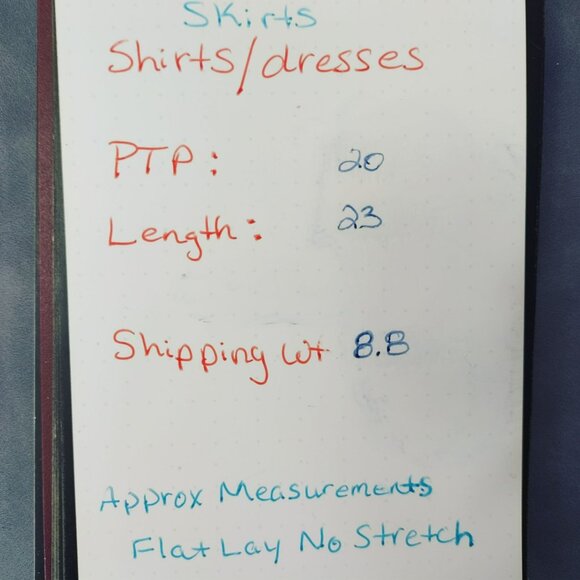 Skirts
Shirts/dresses
PTP: 20
Length: 23
Shipping wt 8.8
Approx Measurements
Flat Lay No Stretch